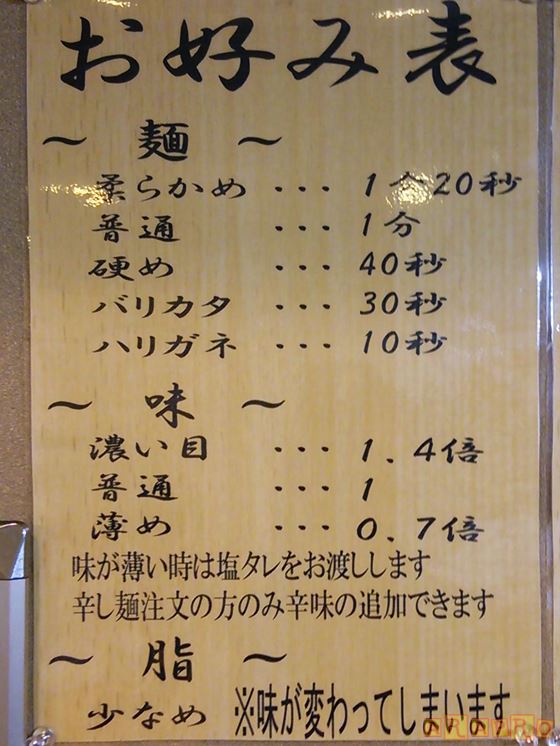 お好み表
～ 麺 ～
柔らかめ ・・・ 1分20秒
普通 ・・・ 1分
硬め ・・・ 40秒
バリカタ ・・・ 30秒
ハリガネ ・・・ 10秒
～ 味 ～
濃い目 ・・・ 1.4倍
普通 ・・・ 1
薄め ・・・ 0.7倍
味が薄い時は塩タレをお渡しします
辛し麺注文の方のみ辛味の追加できます
～ 脂 ～
少なめ ※味が変わってしまいます